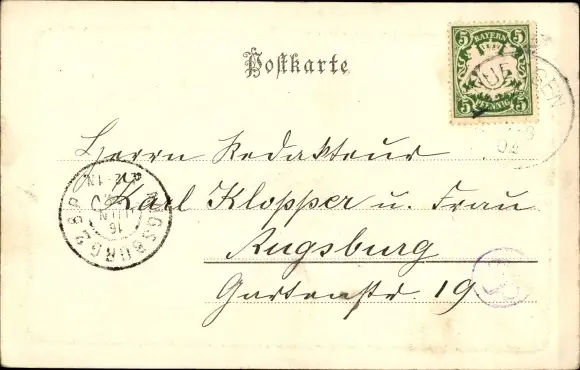 Postkarte
5 BAYERN 5
5 PFENNIG 5
Herrn Redakteur
Karl Klopper u. Frau
Augsburg
Gartenstr. 19
AUGSBURG 2
16